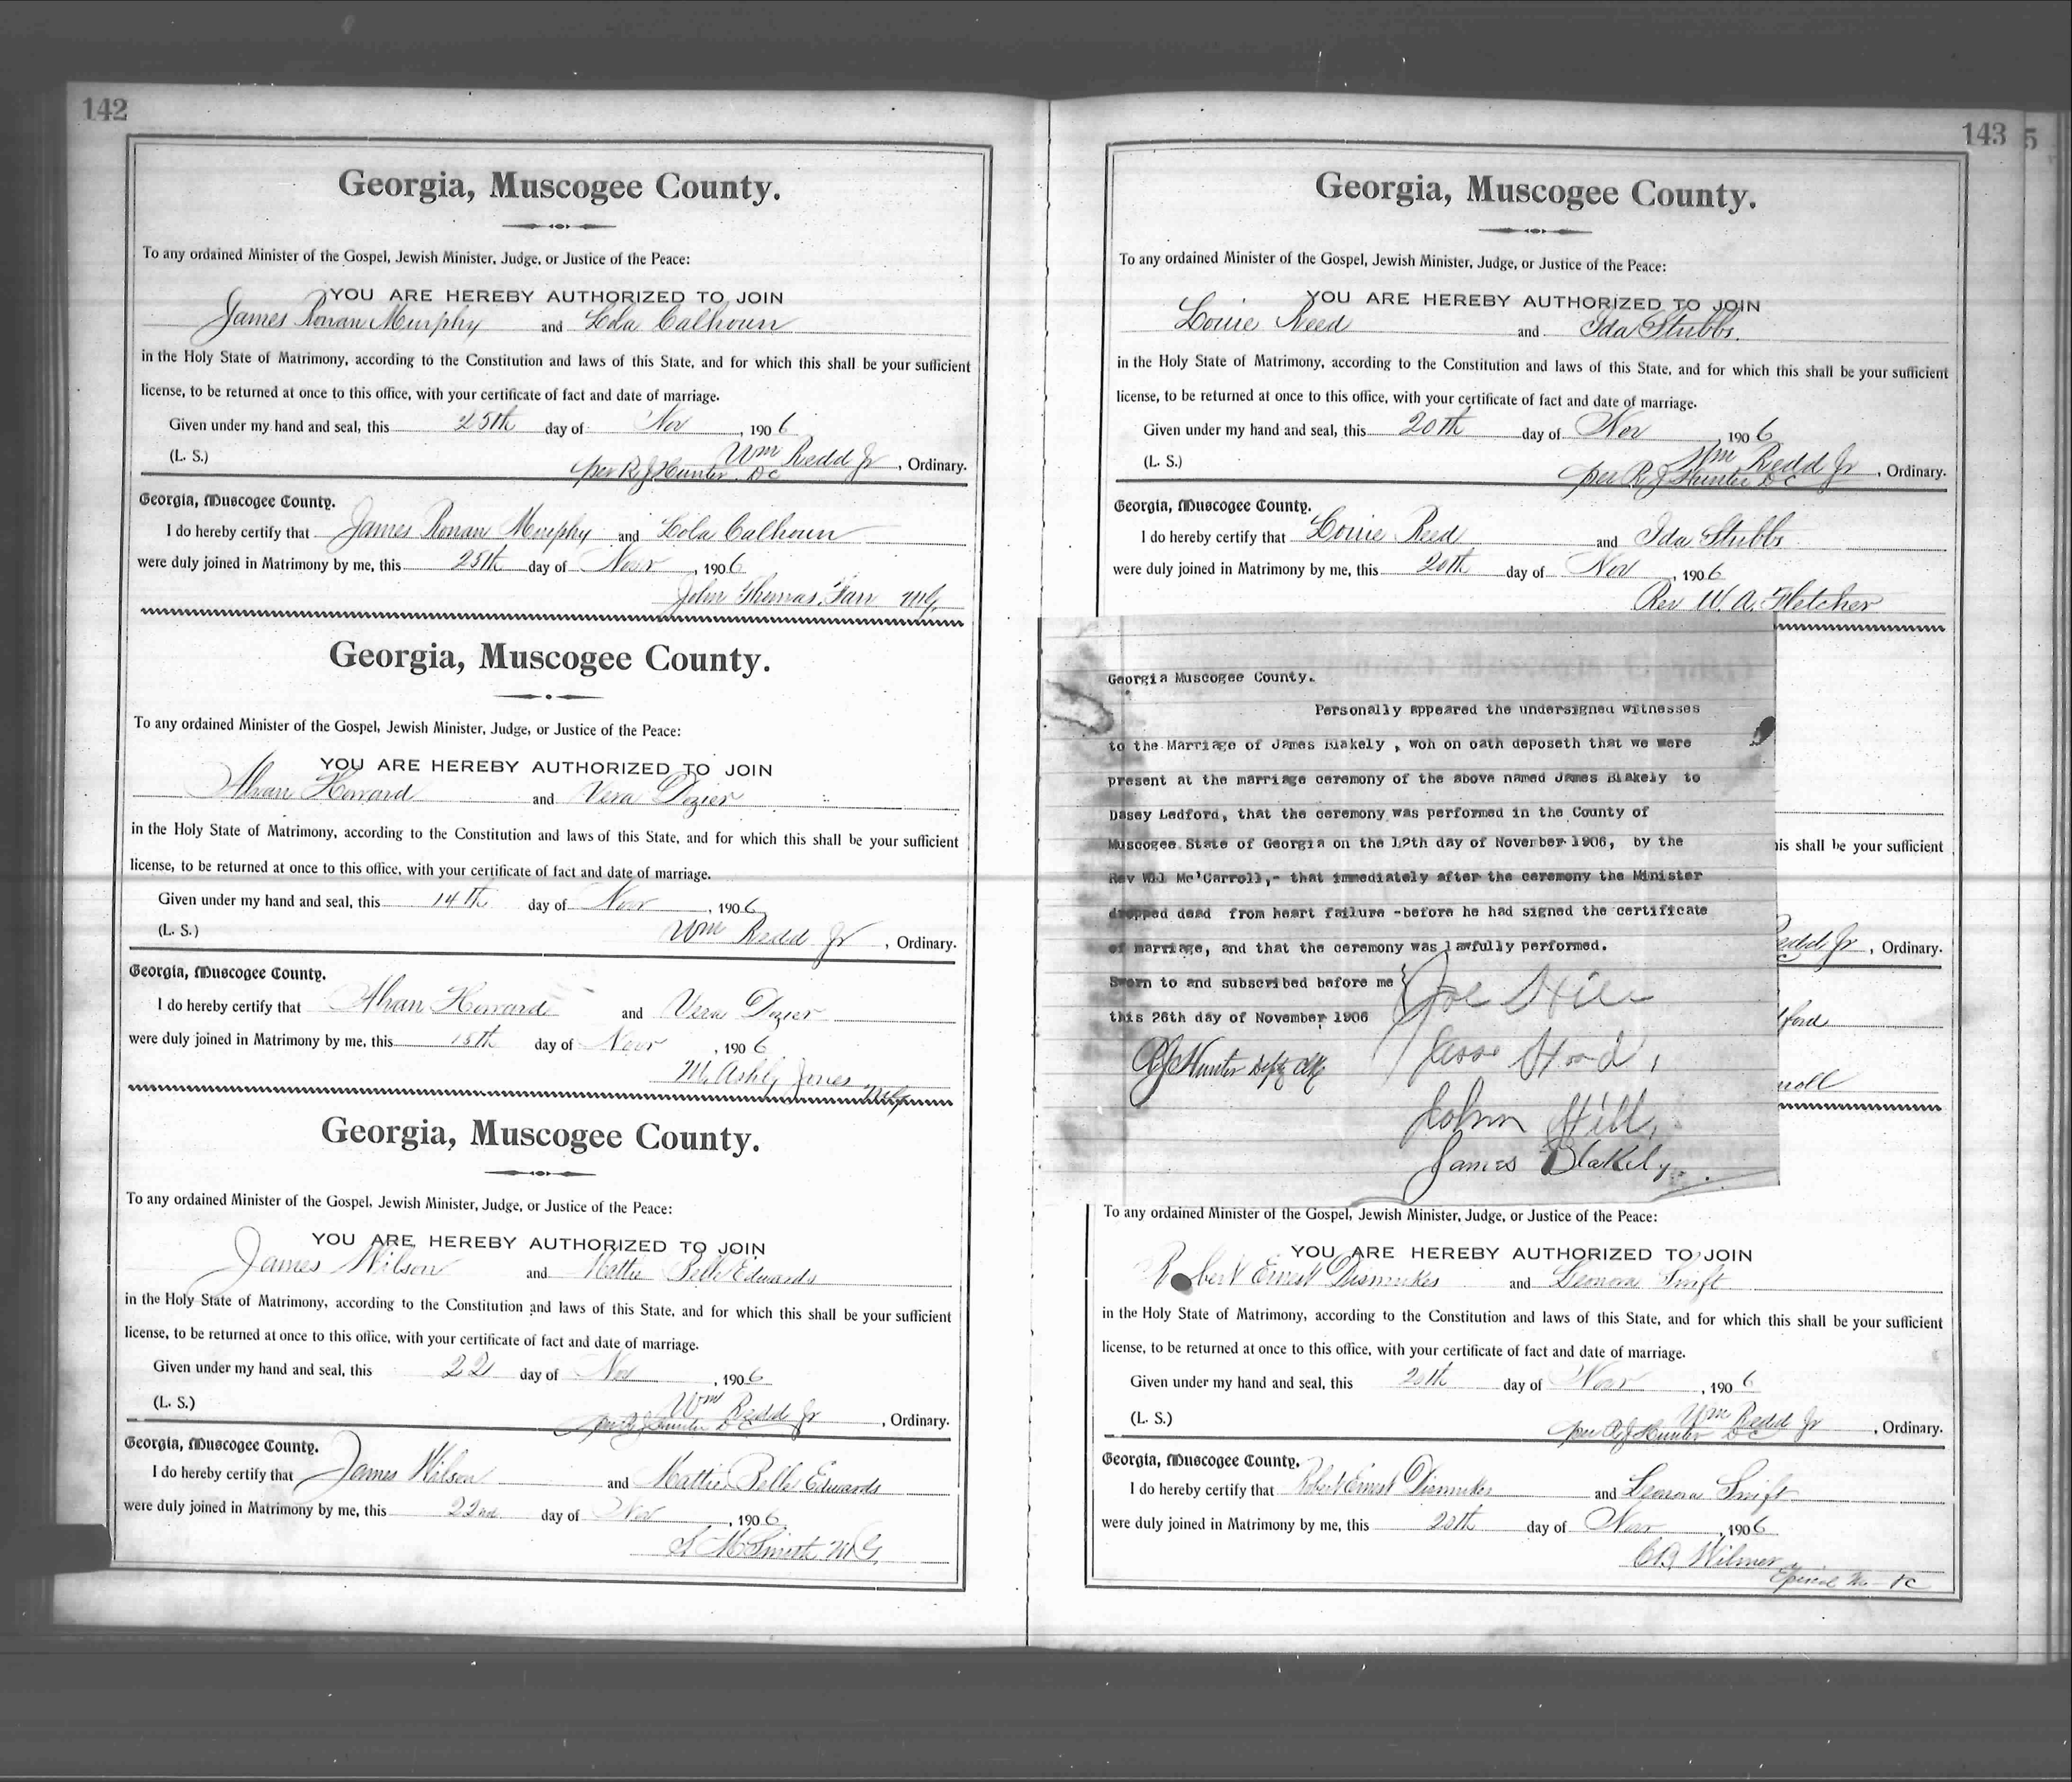 142
Georgia, Muscogee County.
To any ordained Minister of the Gospel, Jewish Minister, Judge, or Justice of the Peace:
YOU ARE HEREBY AUTHORIZED TO JOIN
James Ronan Murphy and Lola Calhoun
in the Holy State of Matrimony, according to the Constitution and laws of this State, and for which this shall be your sufficient
license, to be returned at once to this office, with your certificate of fact and date of marriage.
Given under my hand and seal, this 25th day of Nov, 1906
(L. S.) Wm Redd Jr, Ordinary.
per R J Hunter DC
Georgia, Muscogee County.
I do hereby certify that James Ronan Murphy and Lola Calhoun
were duly joined in Matrimony by me, this 25th day of Nov, 1906
John Thomas Farr MG
Georgia, Muscogee County.
To any ordained Minister of the Gospel, Jewish Minister, Judge, or Justice of the Peace:
YOU ARE HEREBY AUTHORIZED TO JOIN
Alvan Howard and Vera Dozier
in the Holy State of Matrimony, according to the Constitution and laws of this State, and for which this shall be your sufficient
license, to be returned at once to this office, with your certificate of fact and date of marriage.
Given under my hand and seal, this 14th day of Nov, 1906
(L. S.) Wm Redd Jr, Ordinary.
Georgia, Muscogee County.
I do hereby certify that Alvan Howard and Vera Dozier
were duly joined in Matrimony by me, this 15th day of Nov, 1906
M. Ashby Jones
MG
Georgia, Muscogee County.
To any ordained Minister of the Gospel, Jewish Minister, Judge, or Justice of the Peace:
YOU ARE HEREBY AUTHORIZED TO JOIN
James Wilson and Mattie Belle Edwards
in the Holy State of Matrimony, according to the Constitution and laws of this State, and for which this shall be your sufficient
license, to be returned at once to this office, with your certificate of fact and date of marriage.
Given under my hand and seal, this 22 day of Nov, 1906
(L. S.) Wm Redd Jr, Ordinary.
per R J Hunter DC
Georgia, Muscogee County.
I do hereby certify that James Wilson and Mattie Belle Edwards
were duly joined in Matrimony by me, this 22nd day of Nov, 1906
S M Smith MG
143 5
Georgia, Muscogee County.
To any ordained Minister of the Gospel, Jewish Minister, Judge, or Justice of the Peace:
YOU ARE HEREBY AUTHORIZED TO JOIN
Louie Reed and Ida Stubbs.
in the Holy State of Matrimony, according to the Constitution and laws of this State, and for which this shall be your sufficient
license, to be returned at once to this office, with your certificate of fact and date of marriage.
Given under my hand and seal, this 20th day of Nov 1906
(L. S.) Wm Redd Jr, Ordinary.
per R J Hunter DC
Georgia, Muscogee County.
I do hereby certify that Louie Reed and Ida Stubbs
were duly joined in Matrimony by me, this 20th day of Nov, 1906
Rev W. A. Fletcher
Georgia Muscogee County.
Personally appeared the undersigned witnesses
to the Marriage of James Blakely , woh on oath deposeth that we were
present at the marriage ceremony of the above named James Blakely to
Dasey Ledford, that the ceremony was performed in the County of
Muscogee State of Georgia on the 12th day of November 1906, by the
Rev Wil Mc'Carroll,- that immediately after the ceremony the Minister
dropped dead from heart failure -before he had signed the certificate
of marriage, and that the ceremony was lawfully performed.
Sworn to and subscribed before me
this 26th day of November 1906
RJ Hunter Depty Clk
Joe Hill
John Hill,
James Blakely
his shall be your sufficient
edd Jr, Ordinary.
ford
rroll
To any ordained Minister of the Gospel, Jewish Minister, Judge, or Justice of the Peace:
YOU ARE HEREBY AUTHORIZED TO JOIN
Robert Ernest Dismukes and Leonora Swift
in the Holy State of Matrimony, according to the Constitution and laws of this State, and for which this shall be your sufficient
license, to be returned at once to this office, with your certificate of fact and date of marriage.
Given under my hand and seal, this 20th day of Nov, 1906
(L. S.) Wm Redd Jr, Ordinary.
per R J Hunter DC
Georgia, Muscogee County.
I do hereby certify that Robert Ernest Dismukes and Leonora Swift
were duly joined in Matrimony by me, this 20th day of Nov, 1906
C.B. Wilmer